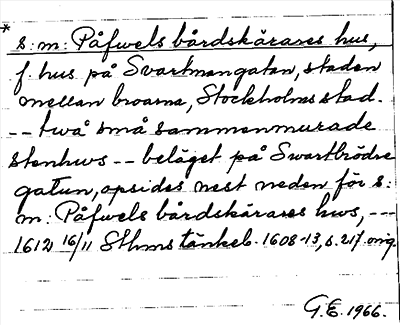 * s: m: Påfwels bårdskärares hus,
f. hus på Svartmangatan, staden
mellan broarna, Stockholms stad.
-- twå små sammenmurade
stenhws -- beläget på Swartbrödre
gatun, opsides nest neden för s:
m: Påfwels bårdskärares hws, ---
1612 16/11 Sthms tänkeb. 1608-13, s. 217 orig.
G.E. 1966.